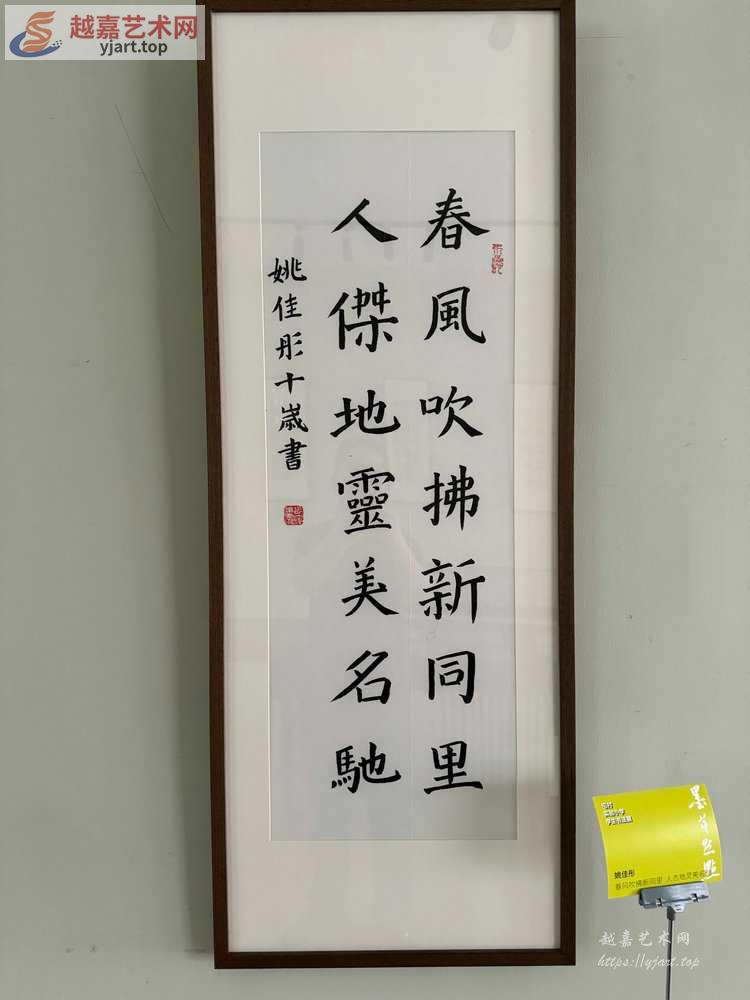 越嘉艺术网
yjart.top
春風吹拂新同里
人傑地靈美名馳
姚佳彤十歲書
姚佳彤
春风吹拂新同里 人杰地灵美
越嘉艺术网
https://yjart.top